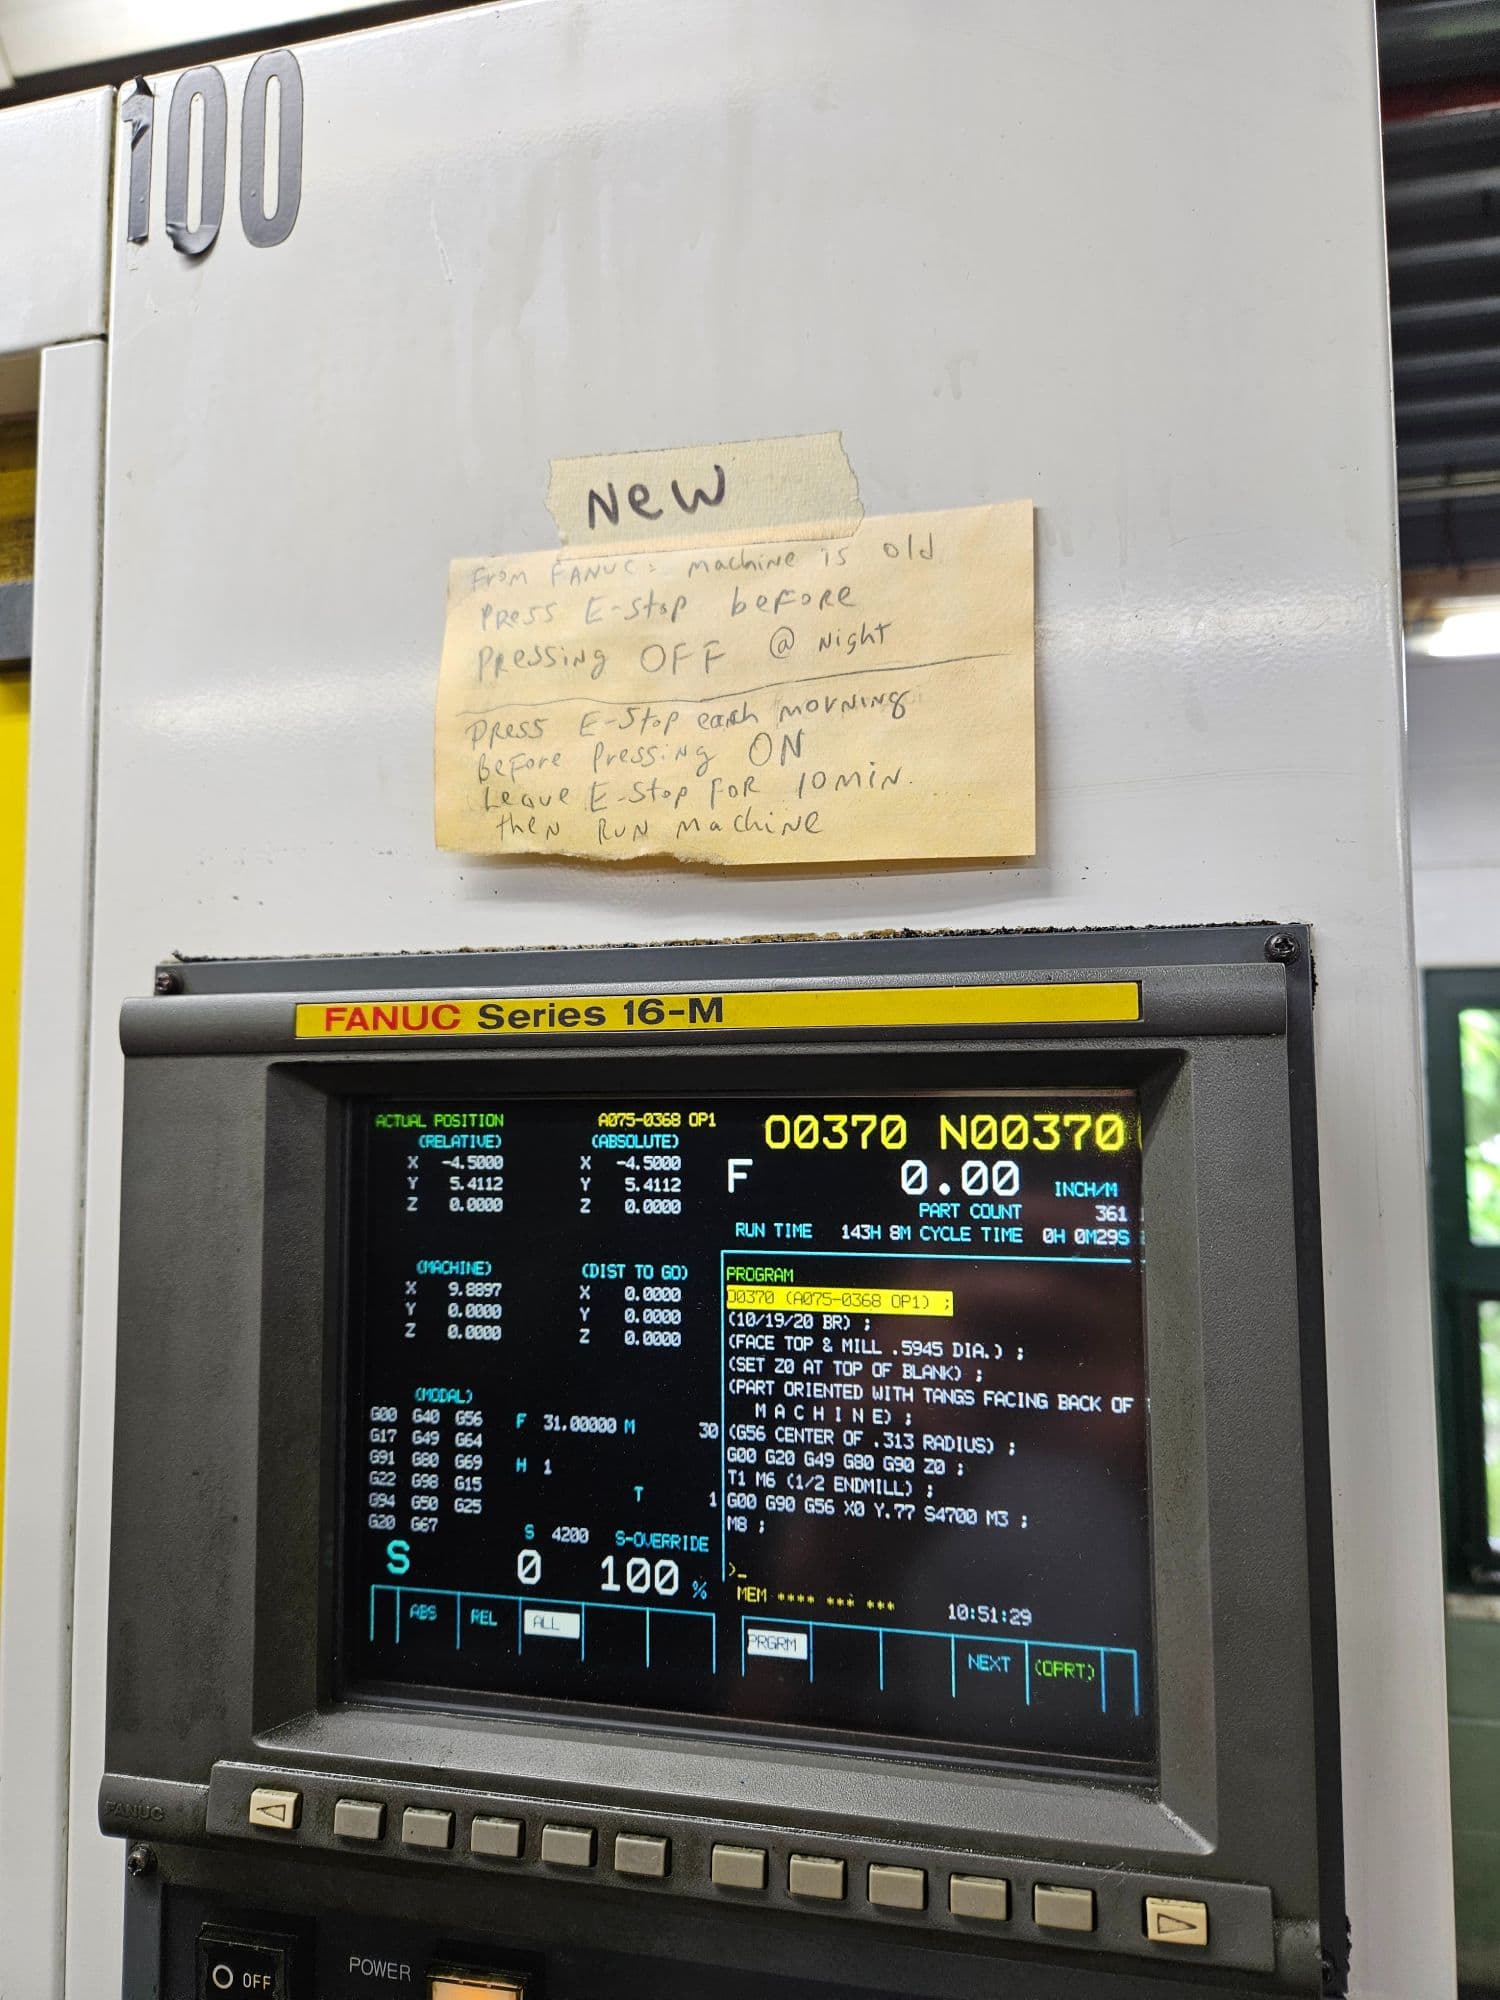 100
New
From FANUC: machine is old
Press E-Stop before
Pressing OFF @ Night
Press E-Stop each morning
Before Pressing ON
Leave E-Stop For 10 min.
then Run Machine
FANUC Series 16-M
ACTUAL POSITION A075-0368 OP1 O0370 N00370
(RELATIVE) (ABSOLUTE)
X -4.5000 X -4.5000
Y 5.4112 Y 5.4112
Z 0.0000 Z 0.0000
F 0.00 INCH/M
PART COUNT 361
RUN TIME 143H 8M CYCLE TIME 0H 0M29S
(MACHINE) (DIST TO GO)
X 9.8897 X 0.0000
Y 0.0000 Y 0.0000
Z 0.0000 Z 0.0000
(MODAL)
G00 G40 G56 F 31.00000 M 30
G17 G49 G64
G91 G80 G69 H 1
G22 G98 G15
G94 G50 G25 T 1
G20 G67
S 4200 S-OVERRIDE
S 0 100 %
PROGRAM
O0370 (A075-0368 OP1) ;
(10/19/20 BR) ;
(FACE TOP & MILL .5945 DIA.) ;
(SET Z0 AT TOP OF BLANK) ;
(PART ORIENTED WITH TANGS FACING BACK OF
M A C H I N E) ;
(G56 CENTER OF .313 RADIUS) ;
G00 G20 G49 G80 G90 Z0 ;
T1 M6 (1/2 ENDMILL) ;
G00 G90 G56 X0 Y.77 S4700 M3 ;
M8 ;
>_
MEM **** *** *** 10:51:29
ABS REL ALL PRGRM NEXT (OPRT)
FANUC
OFF POWER